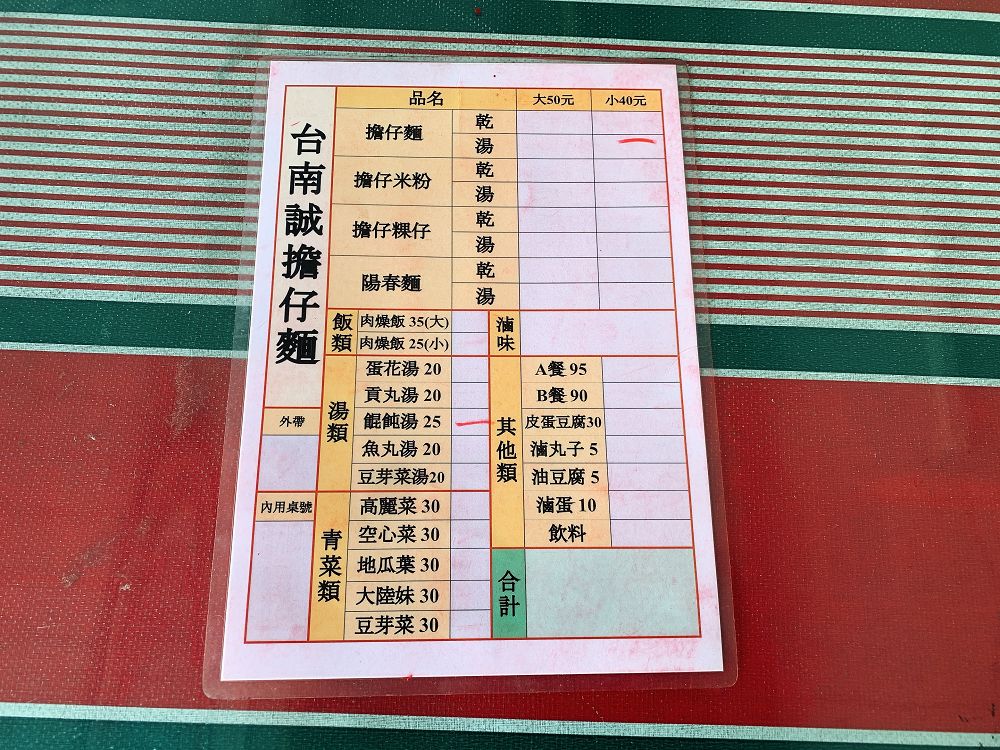 台南誠擔仔麵
外帶
內用桌號
品名 大50元 小40元
擔仔麵 乾
湯
擔仔米粉 乾
湯
擔仔粿仔 乾
湯
陽春麵 乾
湯
飯類
肉燥飯 35(大)
肉燥飯 25(小)
湯類
蛋花湯 20
貢丸湯 20
餛飩湯 25
魚丸湯 20
豆芽菜湯20
青菜類
高麗菜 30
空心菜 30
地瓜葉 30
大陸妹 30
豆芽菜 30
滷味
其他類
A餐 95
B餐 90
皮蛋豆腐30
滷丸子 5
油豆腐 5
滷蛋 10
飲料
合計